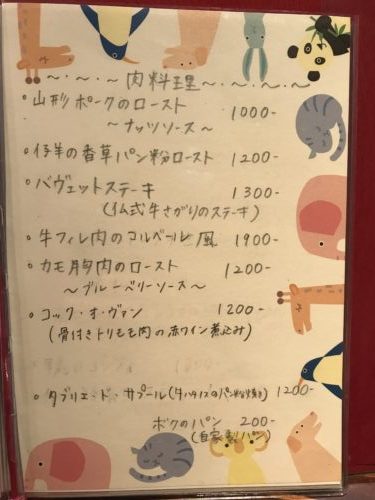 ~・~・~ 肉料理 ~・~・~・~
・山形ポークのロースト 1000-
~ナッツソース~
・仔羊の香草パン粉ロースト 1200-
・バヴェットステーキ 1300-
(仏式牛さがりのステーキ)
・牛フィレ肉のマルベール風 1900-
・カモ胸肉のロースト 1200-
~ブルーベリーソース~
・コック・オ・ヴァン 1200-
(骨付きトリモモ肉の赤ワイン煮込み)
・タブリエ・ド・サプール(牛ハチノスのパン粉焼き) 1200-
ボクのパン 200-
(自家製パン)